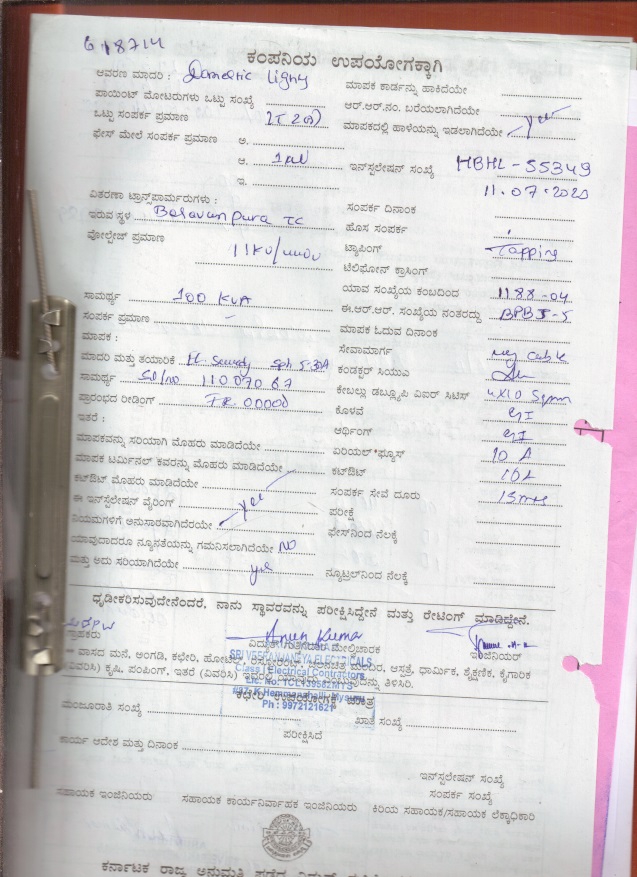 618714
ಕಂಪನಿಯ ಉಪಯೋಗಕ್ಕಾಗಿ
ಆವರಣ ಮಾದರಿ : Domestic
ಮಾಪಕ ಕಾರ್ಡನ್ನು ಹಾಕಿದೆಯೇ
ಪಾಯಿಂಟ್ ಮೋಟರುಗಳು ಒಟ್ಟು ಸಂಖ್ಯೆ
ಆರ್.ಆರ್.ನಂ. ಬರೆಯಲಾಗಿದೆಯೇ
ಒಟ್ಟು ಸಂಪರ್ಕ ಪ್ರಮಾಣ
ಮಾಪಕದಲ್ಲಿ ಹಾಳೆಯನ್ನು ಇಡಲಾಗಿದೆಯೇ yes
ಫೇಸ್ ಮೇಲೆ ಸಂಪರ್ಕ ಪ್ರಮಾಣ ಅ.
ಆ.
ಇನ್‌ಸ್ಟಲೇಷನ್ ಸಂಖ್ಯೆ HBHL-55349
ಇ.
11.07.2020
ವಿತರಣಾ ಟ್ರಾನ್ಸ್‌ಫಾರ್ಮರುಗಳು :
ಸಂಪರ್ಕ ದಿನಾಂಕ
ಇರುವ ಸ್ಥಳ Basavanpura TC
ಹೊಸ ಸಂಪರ್ಕ
ವೋಲ್ಟೇಜ್ ಪ್ರಮಾಣ
ಟ್ಯಾಪಿಂಗ್ Tapping
ಟೆಲಿಫೋನ್ ಕ್ರಾಸಿಂಗ್
ಯಾವ ಸಂಖ್ಯೆಯ ಕಂಬದಿಂದ 1188-04
ಸಾಮರ್ಥ್ಯ 100 KVA
ಈ.ಆರ್.ಆರ್. ಸಂಖ್ಯೆಯ ನಂತರದ್ದು BPBJ-5
ಸಂಪರ್ಕ ಪ್ರಮಾಣ -
ಮಾಪಕ ಓದುವ ದಿನಾಂಕ
ಮಾಪಕ :
ಸೇವಾಮಾರ್ಗ
ಮಾದರಿ ಮತ್ತು ತಯಾರಿಕೆ
ಕಂಡಕ್ಟರ್ ಸಿಯುಎ
ಸಾಮರ್ಥ್ಯ Sl/no 11007067
ಕೇಬಲ್ಲು ಡಬ್ಲ್ಯೂಪಿ ವಿಐರ್ ಸಿಟಿಸ್ 4X10 Sqmm
ಪ್ರಾರಂಭದ ರೀಡಿಂಗ್ FR. 00000
ಕೊಳವೆ GI
ಇತರೆ :
ಆರ್ಥಿಂಗ್ GI
ಮಾಪಕವನ್ನು ಸರಿಯಾಗಿ ಮೊಹರು ಮಾಡಿದೆಯೇ
ಏರಿಯಲ್ ಫ್ಯೂಸ್ 10 A
ಮಾಪಕ ಟರ್ಮಿನಲ್ ಕವರನ್ನು ಮೊಹರು ಮಾಡಿದೆಯೇ
ಕಟ್‌ಔಟ್ 10A
ಕಟ್‌ಔಟ್ ಮೊಹರು ಮಾಡಿದೆಯೇ
ಸಂಪರ್ಕ ಸೇವೆ ದೂರು 15mts
ಈ ಇನ್‌ಸ್ಟಲೇಷನ್ ವೈರಿಂಗ್
ಪರೀಕ್ಷೆ
ನಿಯಮಗಳಿಗೆ ಅನುಸಾರವಾಗಿದೆರೆಯೇ yes
ಫೇಸ್‌ನಿಂದ ನೆಲಕ್ಕೆ
ಯಾವುದಾದರೂ ನ್ಯೂನತೆಯನ್ನು ಗಮನಿಸಲಾಗಿದೆಯೇ NO
ಮತ್ತು ಅದು ಸರಿಯಾಗಿದೆಯೇ yes
ನ್ಯೂಟ್ರಲ್‌ನಿಂದ ನೆಲಕ್ಕೆ
ಧೃಡೀಕರಿಸುವುದೇನೆಂದರೆ, ನಾನು ಸ್ಥಾವರವನ್ನು ಪರೀಕ್ಷಿಸಿದ್ದೇನೆ ಮತ್ತು ರೇಟಿಂಗ್ ಮಾಡಿದ್ದೇನೆ.
Arun Kumar
ಗ್ರಾಹಕರು
ಮೇಲ್ವಿಚಾರಕ
ಇಂಜಿನಿಯರ್
ವಾಸದ ಮನೆ, ಅಂಗಡಿ, ಕಛೇರಿ, ಹೋಟೆಲ್, ಆಸ್ಪತ್ರೆ, ಧಾರ್ಮಿಕ, ಶೈಕ್ಷಣಿಕ, ಕೈಗಾರಿಕ
(ವಿವರಿಸಿ) ಕೃಷಿ, ಪಂಪಿಂಗ್, ಇತರೆ (ವಿವರಿಸಿ) ತಿಳಿಸಿರಿ.
ELECTRICALS
Class I Electrical Contractors
Ph : 9972121621
ಕಛೇರಿ ಉಪಯೋಗಕ್ಕೆ ಮಾತ್ರ
ಮಂಜೂರಾತಿ ಸಂಖ್ಯೆ
ಖಾತೆ ಸಂಖ್ಯೆ
ಪರೀಕ್ಷಿಸಿದೆ
ಕಾರ್ಯ ಆದೇಶ ಮತ್ತು ದಿನಾಂಕ
ಇನ್‌ಸ್ಟಲೇಷನ್ ಸಂಖ್ಯೆ
ಸಂಪರ್ಕ ಸಂಖ್ಯೆ
ಸಹಾಯಕ ಇಂಜಿನಿಯರು
ಸಹಾಯಕ ಕಾರ್ಯನಿರ್ವಾಹಕ ಇಂಜಿನಿಯರು
ಕಿರಿಯ ಸಹಾಯಕ/ಸಹಾಯಕ ಲೆಕ್ಕಾಧಿಕಾರಿ
ಕರ್ನಾಟಕ ರಾಜ್ಯ ಅನುಮತಿ ಪಡೆದ